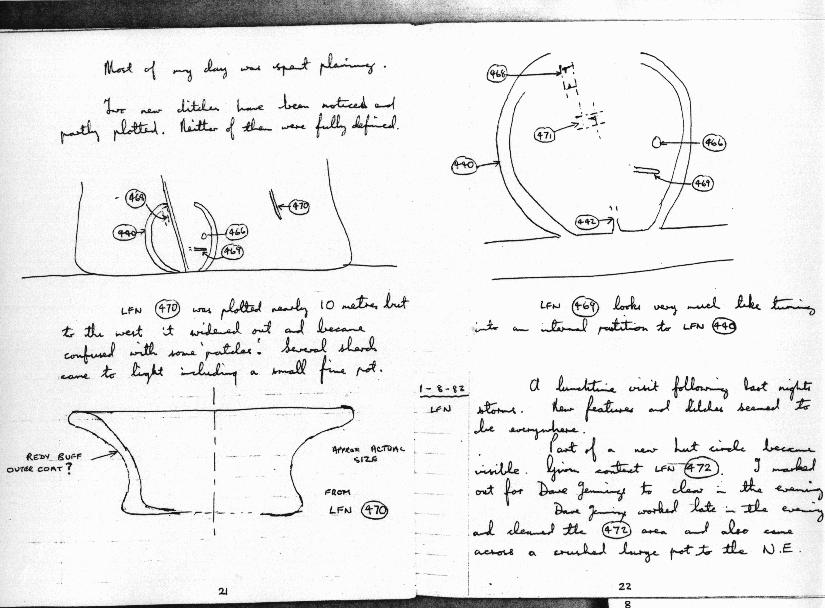 Most of my day was spent planning.
Two new ditches have been noticed and
partly plotted. Neither of them were fully defined.
468
440
466
469
470
LFN 470 was plotted nearly 10 metres but
to the west it widened out and became
confused with some 'patches'. Several sherds
came to light including a small fine pot.
REDY BUFF
OUTER COAT?
APPROX ACTUAL
SIZE
FROM
LFN 470
21
468
471
440
466
469
442
LFN 469 looks very much like turning
into an internal partition to LFN 440
1-8-82
LFN
A lunchtime visit following last nights
storms. New features and ditches seemed to
be everywhere.
Part of a new hut circle became
visible. Given context LFN 472. I marked
out for Dave Jennings to clear in the evening
Dave Jennings worked late in the evening
and cleaned the 472 area and also came
across a crushed large pot to the N.E.
22
8